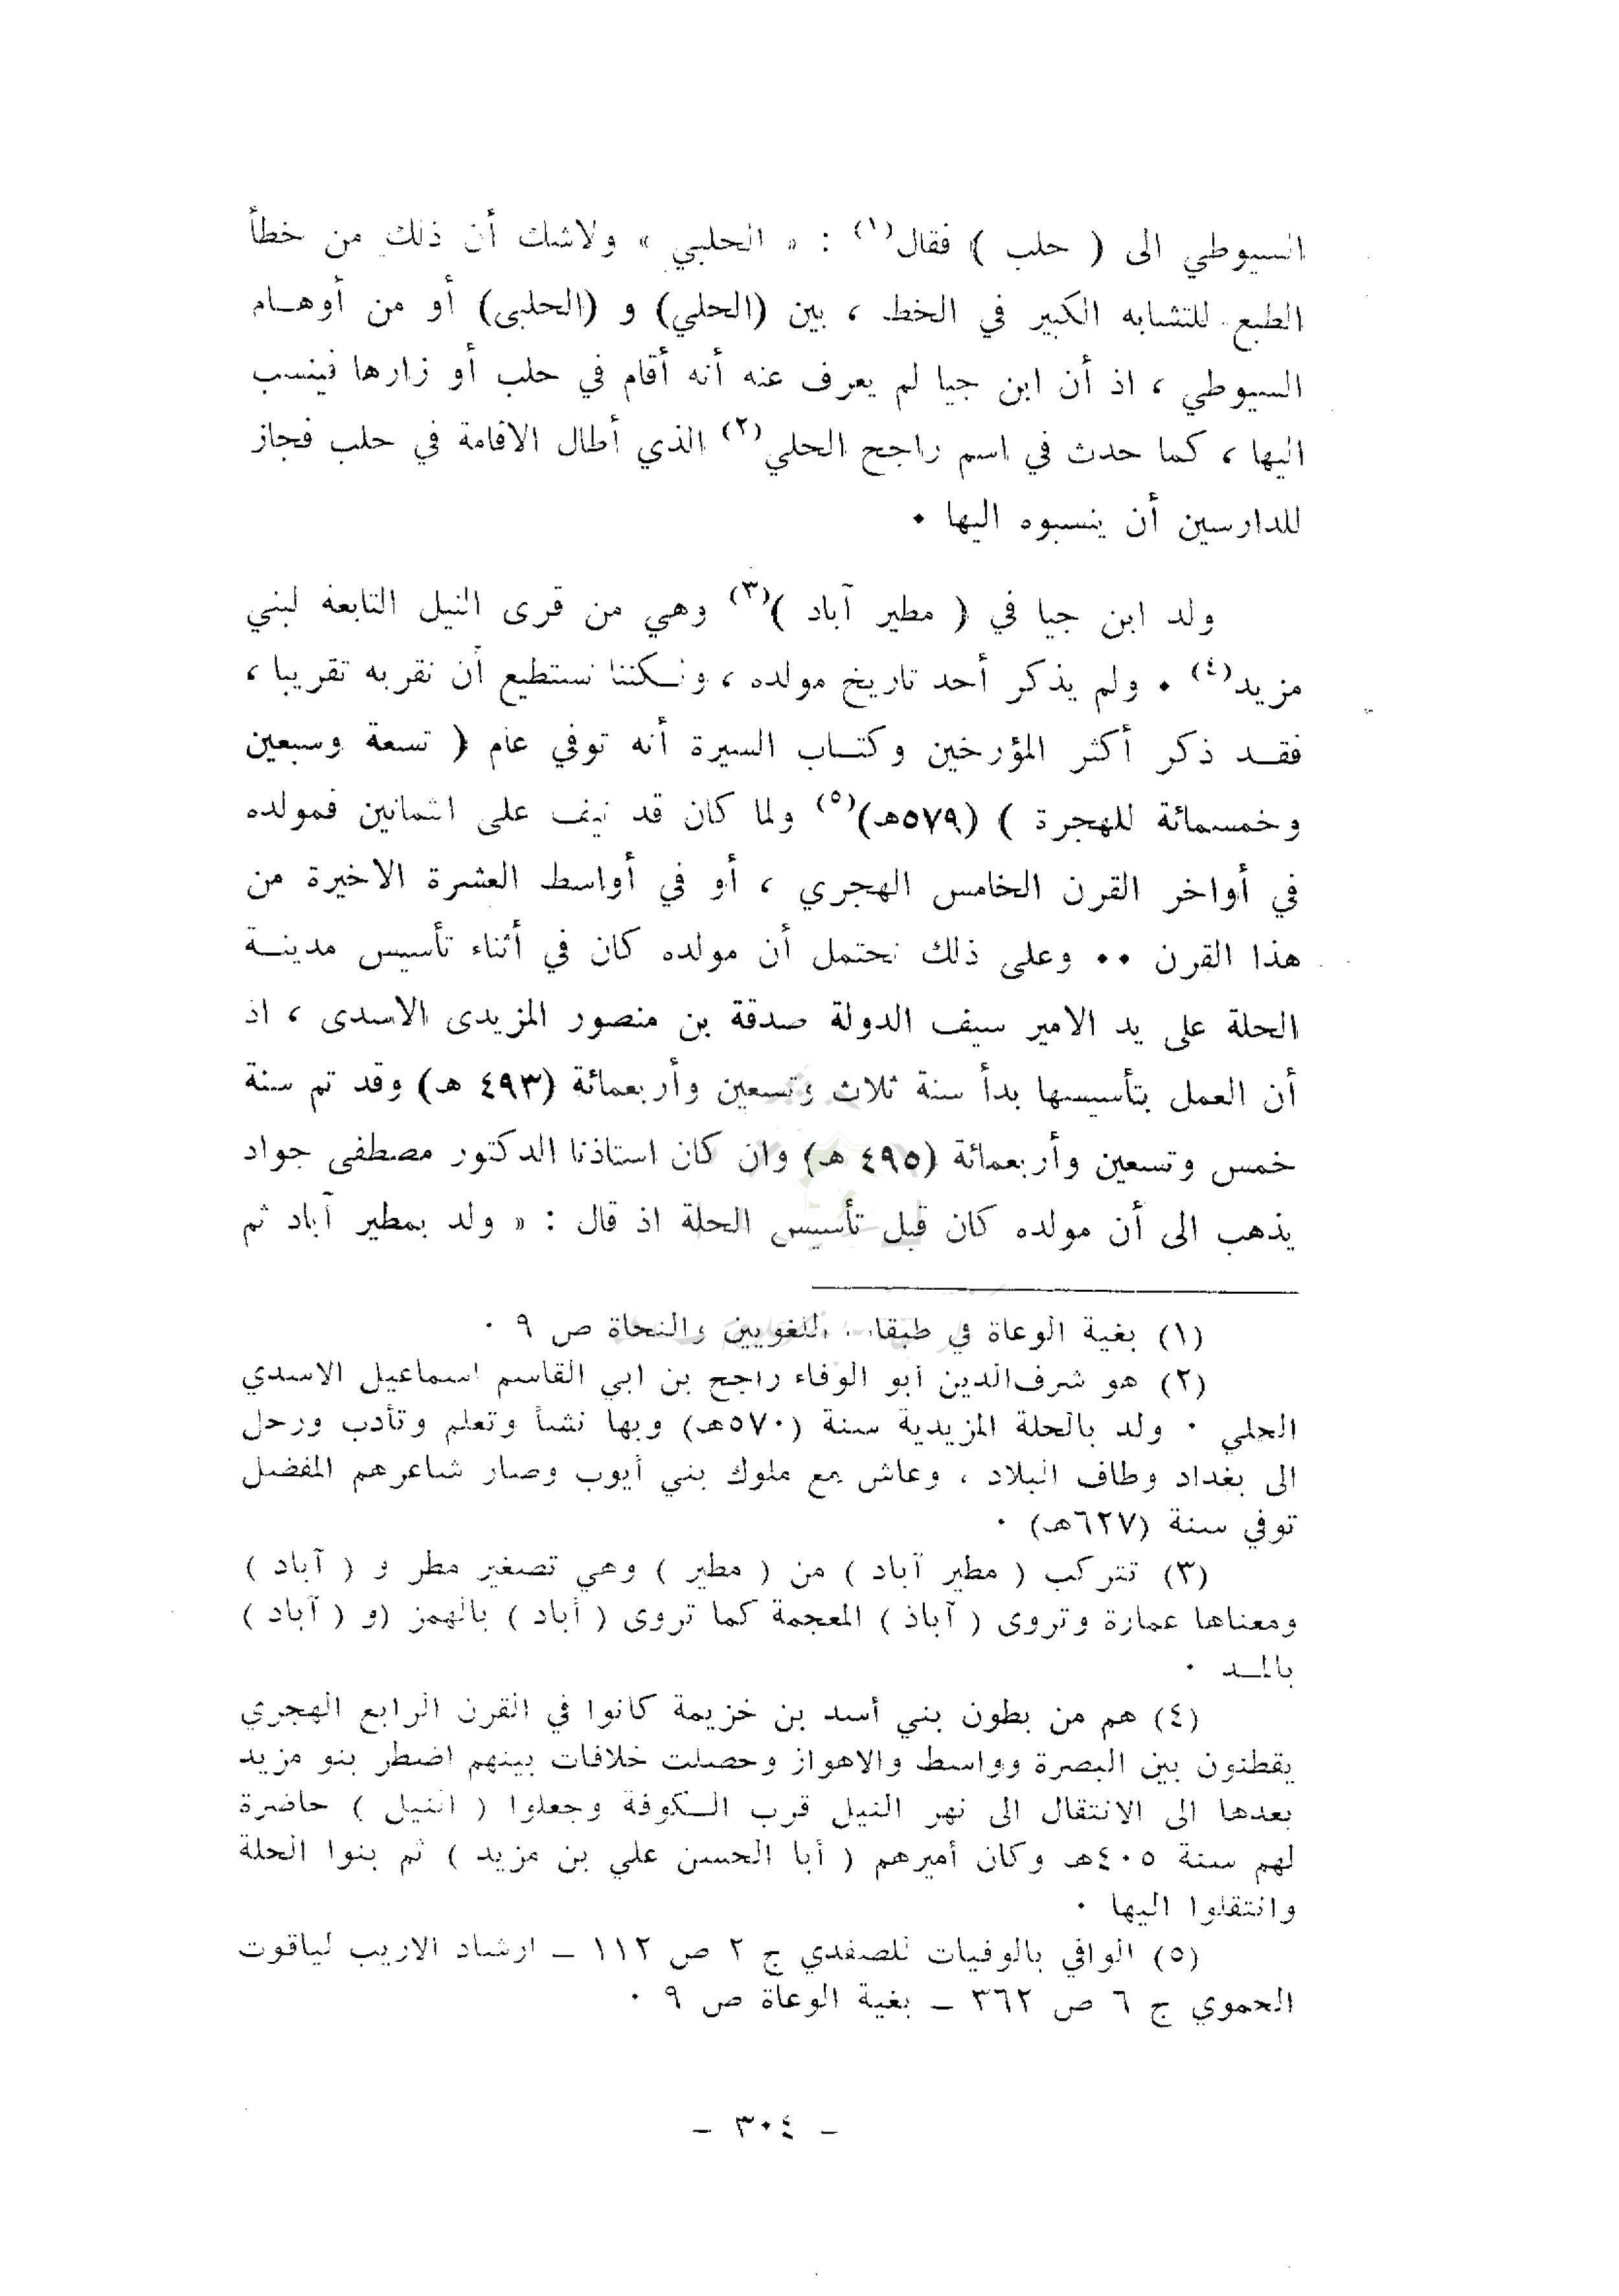 السيوطي الى ( حلب ) فقال(١) : « الحلبي » ولاشك أن ذلك من خطأ
الطبع للتشابه الكبير في الخط ، بين (الحلي) و (الحلبى) أو من أوهـام
السيوطي ، اذ أن ابن جيا لم يعرف عنه أنه أقام في حلب أو زارها فينسب
اليها ، كما حدث في اسم راجح الحلي(٢) الذي أطال الاقامة في حلب فجاز
للدارسين أن ينسبوه اليها ٠
ولد ابن جيا في ( مطير آباد )(٣) وهي من قرى النيل التابعه لبني
مزيد(٤) ٠ ولم يذكر أحد تاريخ مولده ، ولـكننا نستطيع أن نقربه تقريبا ،
فقـد ذكر أكثر المؤرخين وكتـاب السيرة أنه توفي عام ( تسعة وسبعين
وخمسمائة للهجرة ) (٥٧٩هـ)(٥) ولما كان قد نيف على الثمانين فمولده
في أواخر القرن الخامس الهجري ، أو في أواسط العشرة الاخيرة من
هذا القرن ٠٠ وعلى ذلك نحتمل أن مولده كان في أثناء تأسيس مدينـة
الحلة على يد الامير سيف الدولة صدقة بن منصور المزيدى الاسدى ، اذ
أن العمل بتأسيسها بدأ سنة ثلاث وتسعين وأربعمائة (٤٩٣ هـ) وقد تم سنة
خمس وتسعين وأربعمائة (٤٩٥ هـ) وان كان استاذنا الدكتور مصطفى جواد
يذهب الى أن مولده كان قبل تأسيس الحلة اذ قال : « ولد بمطير آباد ثم
(١) بغية الوعاة في طبقات اللغويين والنحاة ص ٩ ٠
(٢) هو شرف‌الدين ابو الوفاء راجح بن ابي القاسم اسماعيل الاسدي
الحلي ٠ ولد بالحلة المزيدية سنة (٥٧٠هـ) وبها نشأ وتعلم وتأدب ورحل
الى بغداد وطاف البلاد ، وعاش مع ملوك بني أيوب وصار شاعرهم المفضل
توفي سنة (٦٢٧هـ) ٠
(٣) تتركب ( مطير آباد ) من ( مطير ) وهي تصغير مطر و ( آباد )
ومعناها عمارة وتروى ( آباذ ) المعجمة كما تروى ( أباد ) بالهمز (و ( آباد )
بالمـد ٠
(٤) هم من بطون بني أسد بن خزيمة كانوا في القرن الرابع الهجري
يقطنون بين البصرة وواسط والاهواز وحصلت خلافات بينهم اضطر بنو مزيد
بعدها الى الانتقال الى نهر النيل قرب الـكوفة وجعلوا ( النيل ) حاضرة
لهم سنة ٤٠٥هـ وكان أميرهم ( أبا الحسن علي بن مزيد ) ثم بنوا الحلة
وانتقلوا اليها ٠
(٥) الوافي بالوفيات للصفدي ج ٢ ص ١١٢ ـ ارشاد الاريب لياقوت
الحموي ج ٦ ص ٣٦٢ ـ بغية الوعاة ص ٩ ٠
ـ ٣٠٤ ـ